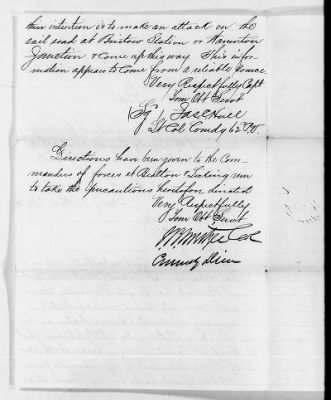 their intention is to make an attack on the
rail road at Bristow Station or Warrenton
Junction & come up his way This infor
mation appears to come from a reliable source
Very Respectfully Capt
Your Obt Servt
(Sg)
Lt Col Comdg 62 P.V.
Directions have been given to the Com-
manders of forces at Bealton & Licking run
to take the precautions heretofore directed
Very Respectfully
Your Obt Servt
Col
Commdg Divn